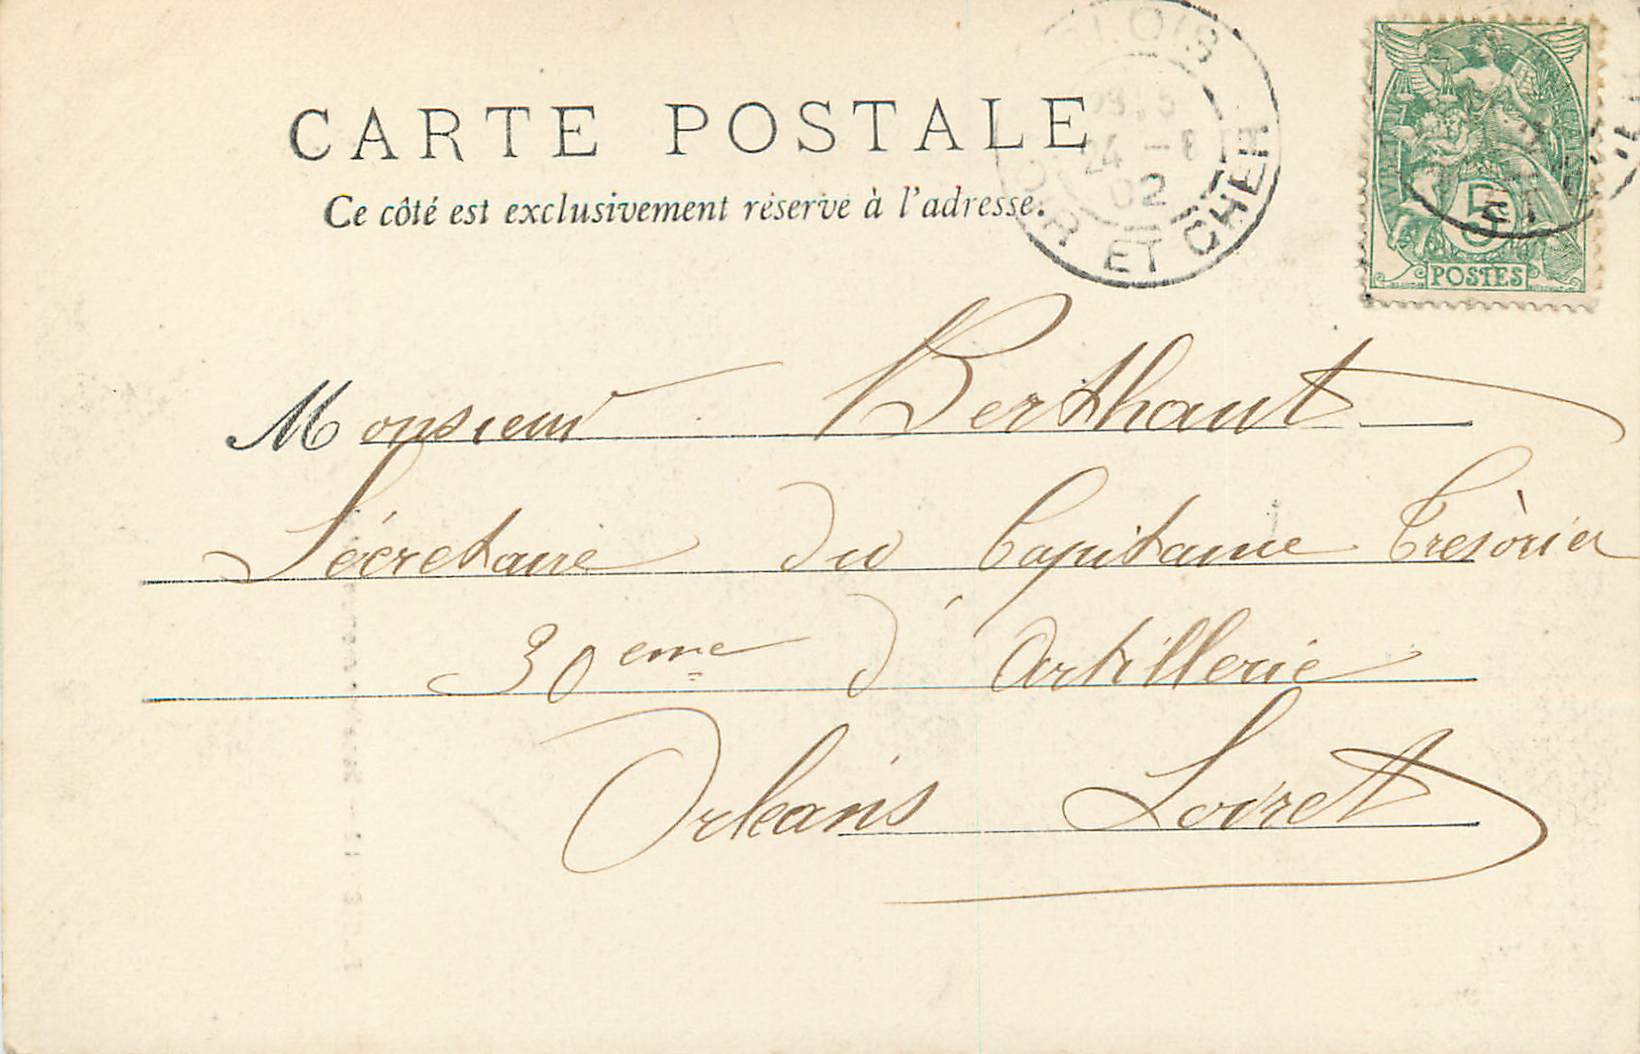 CARTE POSTALE
Ce côté est exclusivement réservé à l'adresse.
BLOIS
24 - 8
02
LOIR ET CHER
5
POSTES
Monsieur Berthaut
Sécretaire du Capitaine Trésorier
30eme d'Artillerie
Orléans Loiret